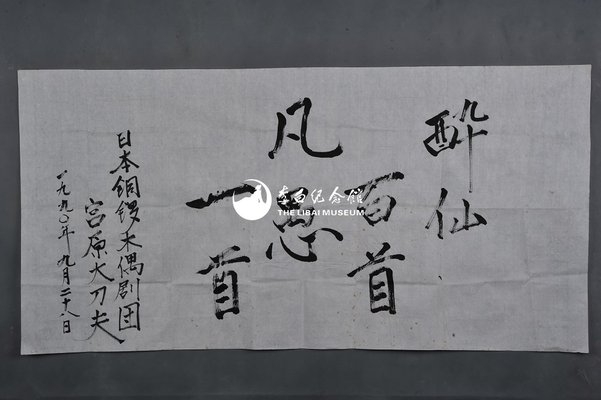 酔仙
百首
凡愚
一首
日本铜锣木偶剧団
宫原大刀夫
一九九〇年九月二十八日
李白纪念馆
THE LIBAI MUSEUM